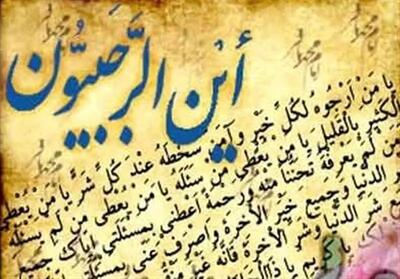 أَيْنَ الرَّجَبِيُّون
يا مَنْ أَرْجُوهُ لِكُلِّ خَيْرٍ وَآمَنُ سَخَطَهُ عِنْدَ كُلِّ شَرٍّ يا مَنْ يُعْطِي
الْكَثِيرَ بِالْقَلِيلِ يا مَنْ يُعْطِي مَنْ سَئَلَهُ يا مَنْ يُعْطِي مَنْ لَمْ يَسْئَلْهُ
مَنْ لَمْ يَعْرِفْهُ تَحَنُّنًا مِنْهُ وَرَحْمَةً أَعْطِنِي بِمَسْئَلَتِي إِيَّاكَ جَمِيعَ
الدُّنْيا وَجَمِيعَ خَيْرِ الْآخِرَةِ وَاصْرِفْ عَنِّي بِمَسْئَلَتِي
شَرِّ الدُّنْيا وَشَرِّ الْآخِرَةِ فَإِنَّهُ غَيْرُ
كَرِيمُ يا ذَا